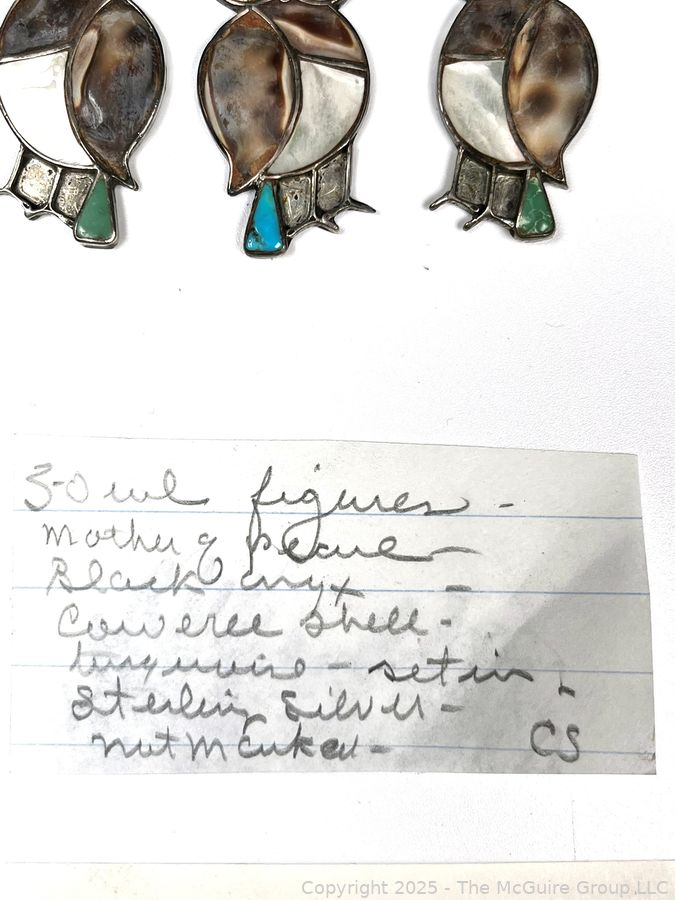 3-Owl figures -
Mother of pearl -
Black onyx -
Coweree Shell -
turquoise - set in -
Sterling Silver -
not Marked - CS
Copyright 2025 - The McGuire Group.LLC